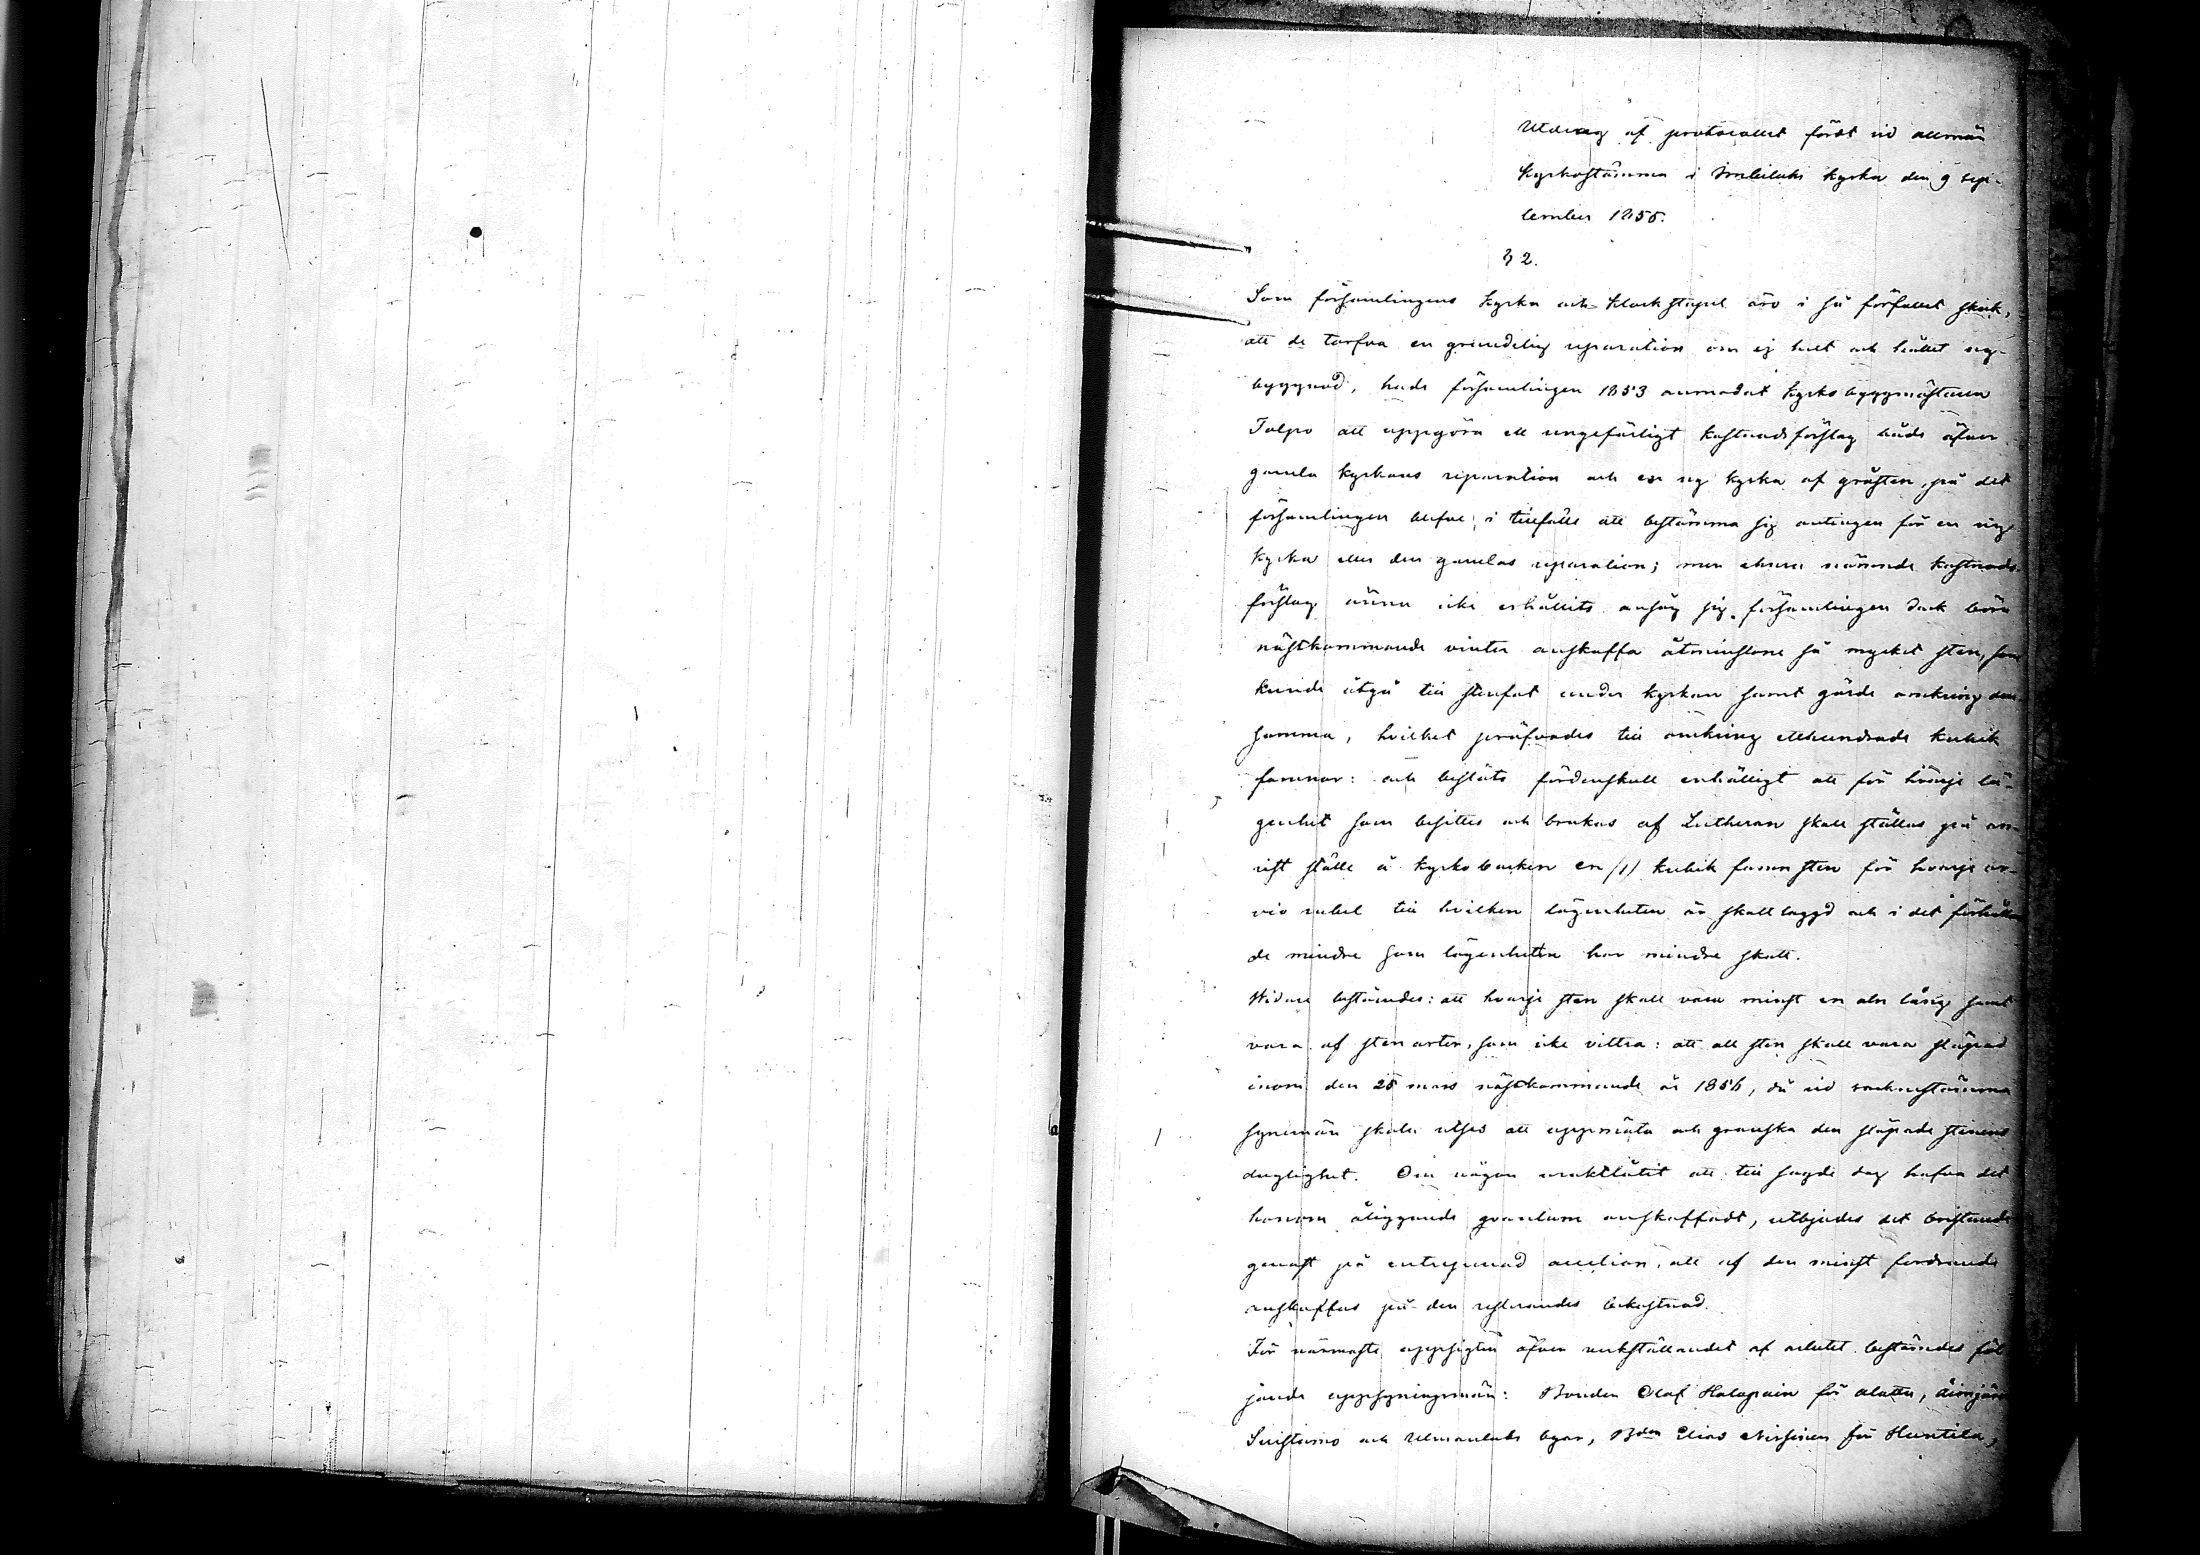 Utdrag af protocollet fördt vid allmän
Kyrkostämma i Impilaks kyrka den 9 sep-
tember 1855.
§ 2.
Som församlingens kyrka och klockstapel äro i så förfallet skick,
att de tarfva en grundelig reparation om ej helt och hållet ny-
byggnad, hade församlingen 1853 anmodat kyrkobyggmästaren
Tolpo att uppgöra ett ungefärligt kostnadsförslag både öfver
gamla kyrkans reparation och en ny kyrka af gråsten, på det
församlingen blefve i tillfälle att bestämma sig antingen för en ny
kyrka eller den gamlas reparation; men ehuru nämnde kostnads-
förslag ännu icke erhållits ansåg sig församlingen dock böra
nästkommande vinter anskaffa åtminstone så mycket sten, som
kunde åtgå till stenfot under kyrkan samt gärde omkring den
samma, hvilket pröfvades till omkring etthundrade kubik
famnar: och beslöts fördenskull enhälligt att för hvarje lä-
genhet som besittes och brukas af Lutheran skall ställas på an-
vist ställe å kyrkobacken en /1/ kubik famn sten för hvarje ar-
vio rubel till hvilken lägenheten är skattlaggd och i det förhållan
de mindre som lägenheten har mindre skatt.
Widare bestämdes: att hvarje sten skall vara minst en aln lång samt
vara af stenarter, som icke vittra: att all sten skall vara släpad
inom den 25 mars nästkommande år 1856, då vid sockenstämma
synemän skola utses att uppmäta och granska den släpade stenens
duglighet. Om någon underlåtit att till sagde dag hafva det
honom åliggande qvantum anskaffadt, utbjudes det bristande
genast på entreprenad auction, att af den minst fordrande
anskaffas på den resterandes bekostnad.
För närmaste uppsigten öfver verkställandet af arbetet bestämdes föl
jande uppsyningsmän: Bonden Olof Halapain för Alattu,
Suistamo och Uomanlaks byar, Bden Elias Nissinen för Huntila,